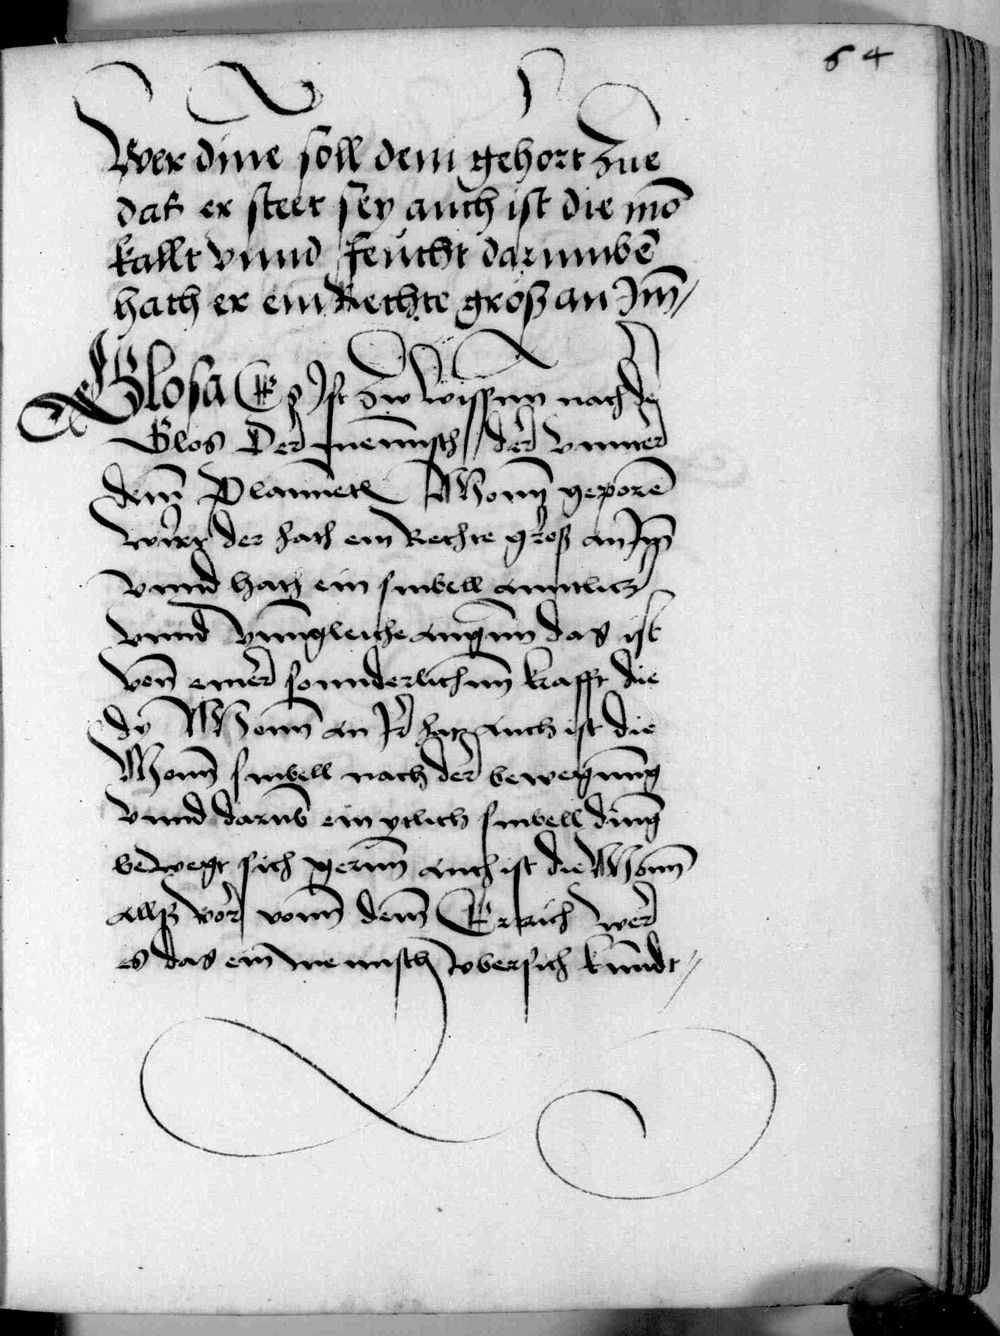 64
Wer dine soll dem gehort Zue
das er steet sey auch ist die mō
kallt vnnd feucht darumbē
hath er ein Rechte größ an Jm̄
Glosa Es Jst Zw wissenn nach der
Glos Der mennsch der vnnter
dem Plannetl Monn geporē
wirt der hath ein Rechte größ an Jm̄
vnnd hath ein sinbell anntlicz
vnnd vnngleiche augenn das ist
von einer sonnderlichenn krafft die
dy Monn an Jr hat auch ist die
Monn sinbell nach der bewegung
vnnd darūb ein ytlich sinbell ding
bewegt sich gernn auch ist die Monn
allß vorr vonn dem Ertrich wer
es das ein mennsch vbersich kunndt